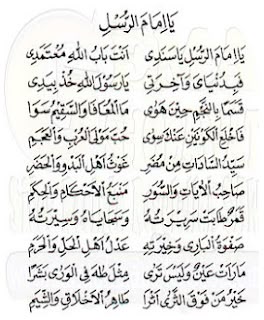 يَا اِمَامَ الرُّسْلِ
يَا اِمَامَ الرُّسْلِ يَاسَنَدِى أَنْتَ بَابُ اللهِ مُعْتَمَدِى
فَبِدُنْيَايَ وَآخِرَتِى يَارَسُوْلَ اللهِ خُذْ بِيَدِى
قَسَمًا بِالنَّجْمِ حِيْنَ هَوٰى مَاالْمُعَافَا وَالسَّقِيْمُ سَوَا
فَاخْلَعِ الْكَوْنَيْنِ عَنْكَ سِوٰى حُبِّ مَوْلَى الْعُرْبِ وَالْعَجَمِ
سَيِّدُ السَّادَاتِ مِنْ مُضَرٍ غَوْثُ اَهْلِ الْبَدْوِ وَالْحَضَرِ
صَاحِبُ الْآيَاتِ وَالسُّوَرِ مَنْبَعُ الْاَحْكَامِ وَالْحِكَمِ
قَمَرٌ طَابَتْ سَرِيْرَتُهُ وَسَجَايَاهُ وَسِيْرَتُهُ
صَفْوَةُ الْبَارِى وَخِيْرَتُهُ عَدْلُ اَهْلِ الْحِلِّ وَالْحَرَمِ
مَا رَأَتْ عَيْنٌ وَلَيْسَ تَرٰى مِثْلَ طٰهَ فِى الْوَرٰى بَشَرًا
خَيْرُ مَنْ فَوْقَ الثَّرٰى أَثَرًا طَاهِرُ الْاَخْلَاقِ وَالشِّيَمِ